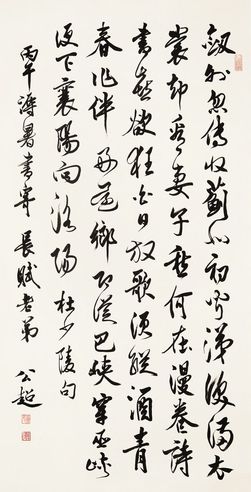 劍外忽傳收薊北初聞涕淚滿衣
裳却看妻子愁何在漫卷詩
書喜欲狂白日放歌須縱酒青
春作伴好還鄉即從巴峽穿巫峽
便下襄陽向洛陽 杜少陵句
丙午溽暑書寄 長賦老弟
公超